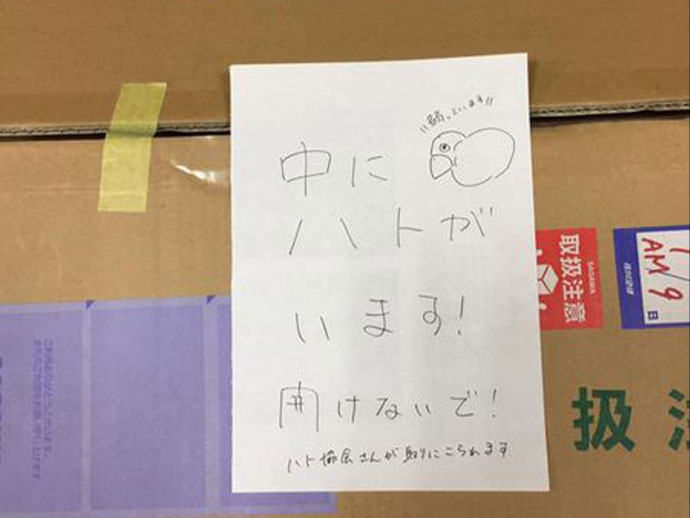 "弱っています"
中に
ハトが
います!
開けないで!
ハト協会さんが取りにこられます
取扱注意
SAGAWA
1
AM/9
日
扱